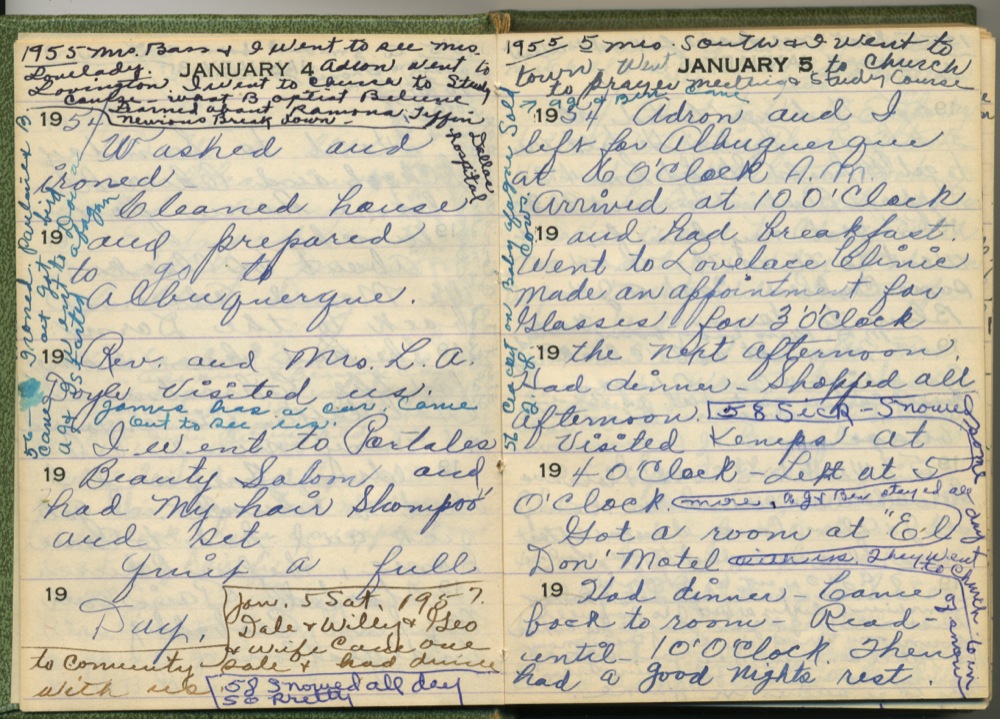 1955 Mrs. Bass & I went to see Mrs.
Lovelady. Adron went to
JANUARY 4
Lovington I went to Church to Study
Course - what Baptist Believe
Learned about Ramona Tiffin
Nervious Break down -
Dallas
hospital
1954
Washed and
ironed
Cleaned house
19 and prepared
to go to
Albuquerque.
19 Rev. and Mrs. L. A.
Doyle Visited us.
James has a car. Came
out to see us.
I went to Portales
19 Beauty Saloon and
had My hair Shampoo
and set
Quiet a full
19 Day.
56 - Ironed. Paulines B.
Came out got bird
Jan. 5 Sat. 1957.
Dale & Willy & Geo
& wife Came one
sale & had dinner
to Comunity
with us
58 Snowed all day
56 Pretty
1955 5 Mrs. South & I went to
town, Went to Church
JANUARY 5
to prayer meeting & Study Course
1954 Adron and I
left for Albuquerque
at 6 O'Clock A.M.
Arrived at 10 O'Clock
19 and had breakfast.
Went to Lovelace Clinic
Made an appointment for
Glasses for 3 O'Clock
19 the next afternoon.
Had dinner - Shopped all
afternoon. 58 Sick - Snowed
some
Visited Kemps at
19 4 O'Clock - Left at 5
O'Clock. more, & Bev stayed all
day
Got a room at "El
Don' Motel with us. They went
to Church 6 in
of snow
19 Had dinner - Came
back to room - Read -
until - 10 O'Clock. Then
had a good nights rest.
56 Clear cast on Baby Yague Sold
Cows.